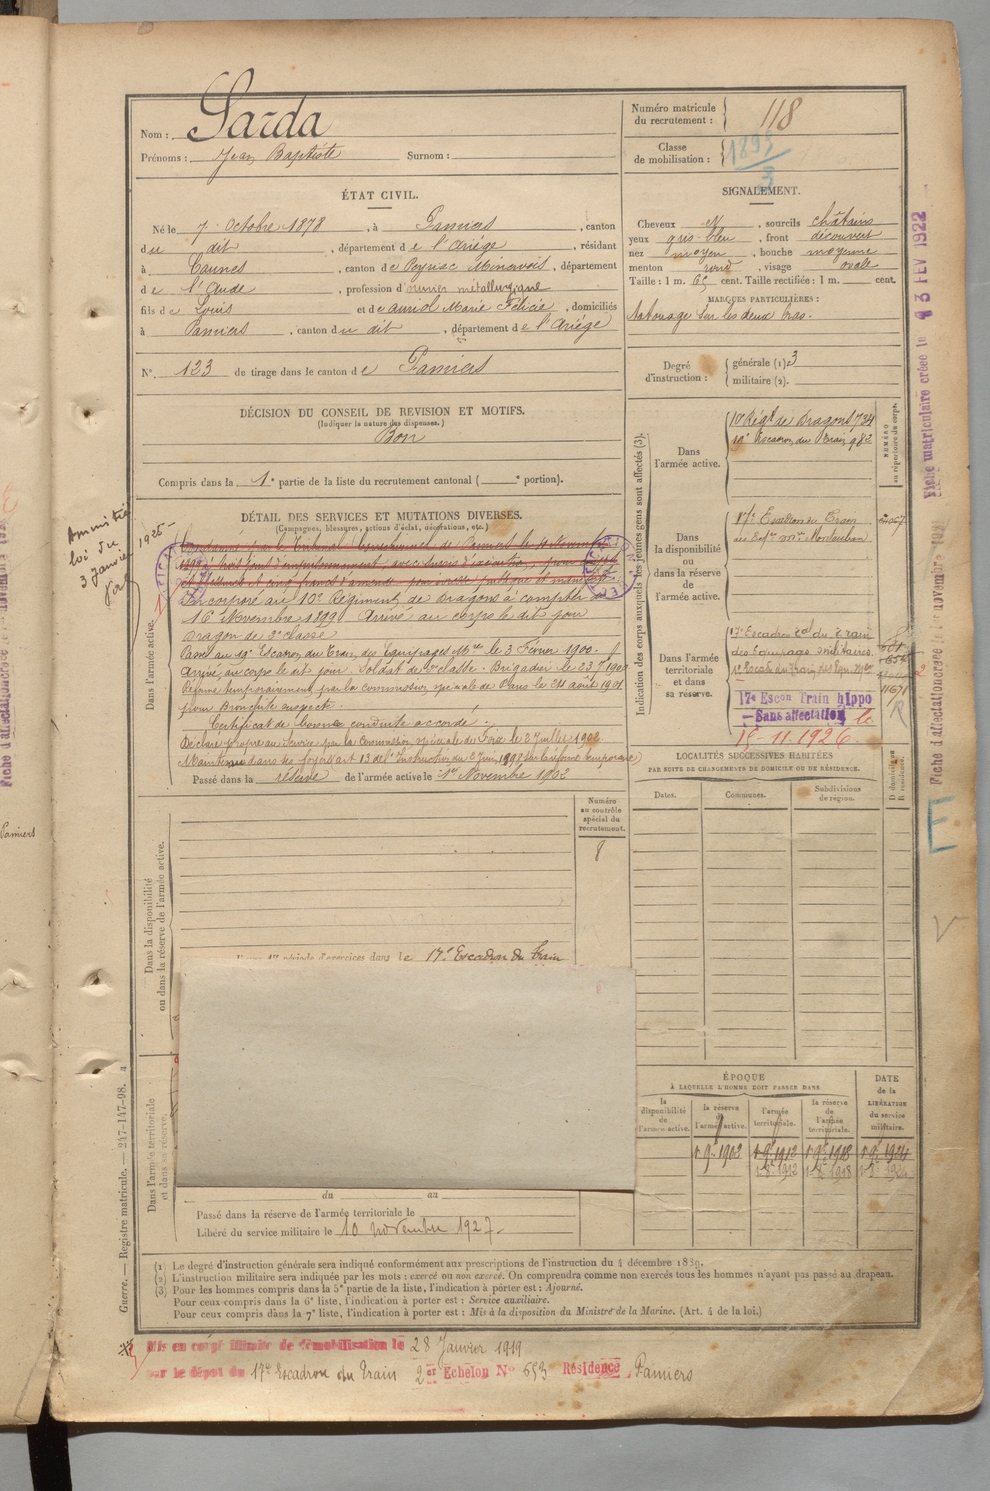 Nom : Sarda
Prénoms : Jean Baptiste Surnom :
Numéro matricule du recrutement : 118
Classe de mobilisation : 1895
3
ÉTAT CIVIL.
Né le 7 Octobre 1878, à Pamiers, canton
du dit, département de l'Ariège, résidant
à Caunes, canton de Peyriac Minervois, département
de l'Aude, profession d'ouvrier métallurgique
fils de Louis et de auriol Marie Félicie, domiciliés
à Pamiers, canton du dit, département de l'Ariège
N°. 123 de tirage dans le canton de Pamiers
SIGNALEMENT.
Cheveux et, sourcils châtains
yeux gris-bleu, front découvert
nez moyen, bouche moyenne
menton rond, visage ovale
Taille : 1 m. 65 cent. Taille rectifiée : 1 m. cent.
MARQUES PARTICULIÈRES :
Tatouage sur les deux bras.
Degré d'instruction : générale (1). 3
militaire (2).
DÉCISION DU CONSEIL DE REVISION ET MOTIFS.
(Indiquer la nature des dispenses.)
Bon
Compris dans la 1e partie de la liste du recrutement cantonal ( e portion).
DÉTAIL DES SERVICES ET MUTATIONS DIVERSES.
(Campagnes, blessures, actions d'éclat, décorations, etc.)
Amnistié
loi du
3 janvier
1925
Dans l'armée active.
Condamné par le Tribunal Correctionnel de Pamiers le 10 Novembre
1899 à huit jours d'emprisonnement avec sursis d'exécution, pour
et cinq francs d'amende pour ivresse publique et manifeste
Incorporé au 10e Régiment de Dragons à compter du
16 Novembre 1899. Arrivé au corps le dit jour
Dragon de 2e classe
Passé au 19e Escadron du Train des Equipages Mres le 3 Février 1900.
Arrivé au corps le dit jour. Soldat de 2e classe. Brigadier le 23
Réformé temporairement par la Commission spéciale de Paris le 24 août 1901
pour Bronchite suspecte.
Certificat de bonne conduite accordé.
Déclaré propre au service par la Commission spéciale de Foix le 2 Juillet 1902
Maintenu dans ses foyers art. 13 de l'Instruction du 6 Juin 1902 sur la réforme temporaire)
Passé dans la réserve de l'armée active le 1er Novembre 1902
Indication des corps auxquels les jeunes gens sont affectés (3).
NUMÉRO au répertoire du corps.
Dans l'armée active.
10e Régt de Dragons 734
19e Escadron du Train 982
Dans la disponibilité ou dans la réserve de l'armée active.
17e Escadron du Train
des Eqp. Mres Montauban
Dans l'armée territoriale et dans sa réserve.
17e Escadron Ral du Train
des Equipages Militaires
17e Escad. du Train des Equ. Mres
11671
R
17e Escon Train hippo
— Sans affectation le
15-11-1926
LOCALITÉS SUCCESSIVES HABITÉES
PAR SUITE DE CHANGEMENTS DE DOMICILE OU DE RÉSIDENCE.
Dates. Communes. Subdivisions de région. D domicile R résidence.
Numéro au contrôle spécial du recrutement.
8
Dans la disponibilité ou dans la réserve de l'armée active.
période d'exercices dans le 17e Escadron du Train
Dans l'armée territoriale et dans sa réserve.
du au
Passé dans la réserve de l'armée territoriale le
Libéré du service militaire le 10 novembre 1927.
ÉPOQUE
À LAQUELLE L'HOMME DOIT PASSER DANS
DATE de la LIBÉRATION du service militaire.
la disponibilité de l'armée active. la réserve de l'armée active. l'armée territoriale. la réserve de l'armée territoriale.
1er 9e 1902 1er 9e 1912 1er 9e 1918 1er 9e 1924
1912 1918 1924
(1) Le degré d'instruction générale sera indiqué conformément aux prescriptions de l'instruction du 4 décembre 1889.
(2) L'instruction militaire sera indiquée par les mots : exercé ou non exercé. On comprendra comme non exercés tous les hommes n'ayant pas passé au drapeau.
(3) Pour les hommes compris dans la 5e partie de la liste, l'indication à porter est : Ajourné.
Pour ceux compris dans la 6e liste, l'indication à porter est : Service auxiliaire.
Pour ceux compris dans la 7e liste, l'indication à porter est : Mis à la disposition du Ministre de la Marine. (Art. 4 de la loi.)
Mis en congé illimité de démobilisation le 28 Janvier 1919
sur le dépôt du 17e Escadron du Train 2er Echelon N° 653 Résidence Pamiers
Guerre. — Registre matricule. — 247-147-98.
Fiche matriculaire créée le 3 FEV 1922
Fiche d'affectation créée le 1er novembre
E
Pamiers